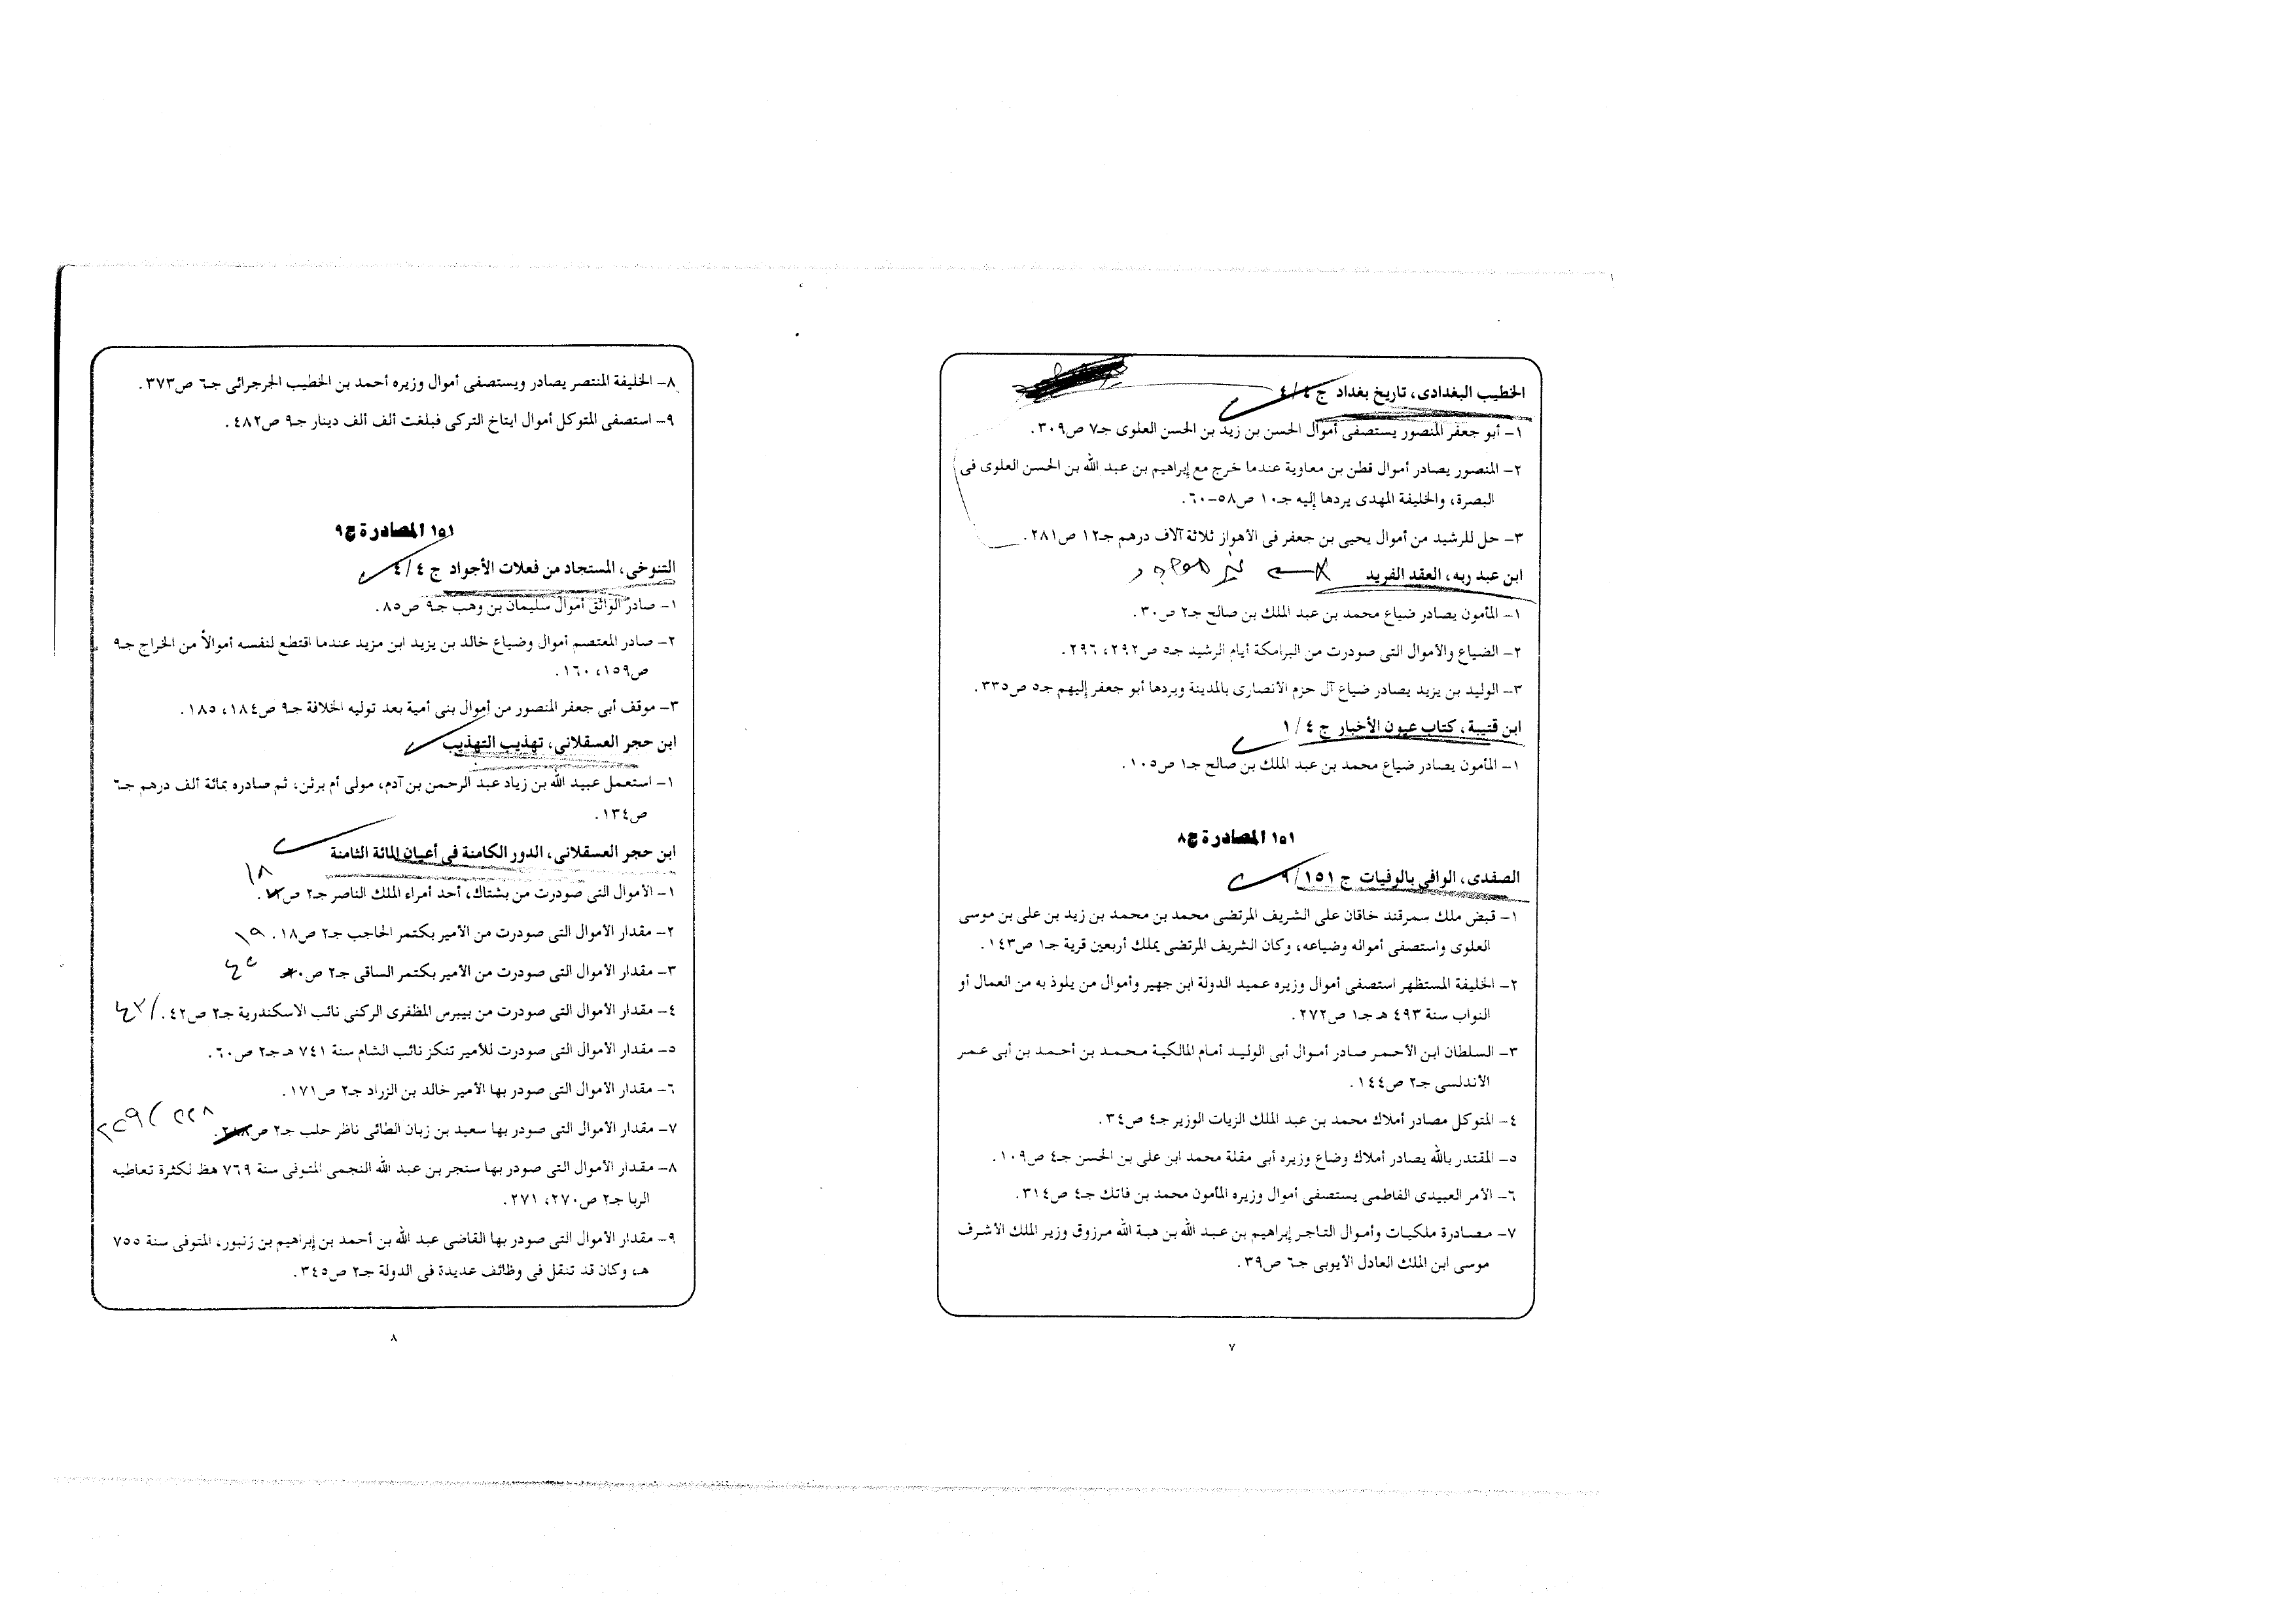 الخطيب البغدادى، تاريخ بغداد ج ٤/٤
١- أبو جعفر المنصور يستصفى أموال الحسن بن زيد بن الحسن العلوى جـ٧ ص٣٠٩.
٢- المنصور يصادر أموال قطن بن معاوية عندما خرج مع إبراهيم بن عبد الله بن الحسن العلوى فى
البصرة، والخليفة المهدى يردها إليه جـ١٠ ص٥٨-٦٠.
٣- حل للرشيد من أموال يحيى بن جعفر فى الأهواز ثلاثة آلاف درهم جـ١٢ ص٢٨١.
ابن عبد ربه، العقد الفريد غير موجود
١- المأمون يصادر ضياع محمد بن عبد الملك بن صالح جـ٢ ص٣٠.
٢- الضياع والأموال التى صودرت من البرامكة أيام الرشيد جـ٥ ص٢٩٢، ٢٩٦.
٣- الوليد بن يزيد يصادر ضياع آل حزم الأنصارى بالمدينة ويردها أبو جعفر إليهم جـ٥ ص٣٣٥.
ابن قتيبة، كتاب عيون الأخبار ج ٤/١
١- المأمون يصادر ضياع محمد بن عبد الملك بن صالح جـ١ ص١٠٥.
١٥١ المصادرة ج٨
الصفدى، الوافى بالوفيات ج ٩/١٥١
١- قبض ملك سمرقند خاقان على الشريف المرتضى محمد بن محمد بن زيد بن على بن موسى
العلوى واستصفى أمواله وضياعه، وكان الشريف المرتضى يملك أربعين قرية جـ١ ص١٤٣.
٢- الخليفة المستظهر استصفى أموال وزيره عميد الدولة ابن جهير وأموال من يلوذ به من العمال أو
النواب سنة ٤٩٣ هـ جـ١ ص٢٧٢.
٣- السلطان ابن الأحمر صادر أموال أبى الوليد أمام المالكية محمد بن أحمد بن أبى عمر
الأندلسى جـ٢ ص١٤٤.
٤- المتوكل مصادر أملاك محمد بن عبد الملك الزيات الوزير جـ٤ ص٣٤.
٥- المقتدر بالله يصادر أملاك وضاع وزيره أبى مقلة محمد ابن على بن الحسن جـ٤ ص١٠٩.
٦- الأمر العبيدى الفاطمى يستصفى أموال وزيره المأمون محمد بن فاتك جـ٤ ص٣١٤.
٧- مصادرة ملكيات وأموال التاجر إبراهيم بن عبد الله بن هبة الله مرزوق وزير الملك الأشرف
موسى ابن الملك العادل الأيوبى جـ٦ ص٣٩.
٧
٨- الخليفة المنتصر يصادر ويستصفى أموال وزيره أحمد بن الخطيب الجرجرائى جـ٦ ص٣٧٣.
٩- استصفى المتوكل أموال ايتاخ التركى فبلغت ألف ألف دينار جـ٩ ص٤٨٢.
١٥١ المصادرة ج٩
التنوخى، المستجاد من فعلات الأجواد ج ٤/٤
١- صادر الواثق أموال سليمان بن وهب جـ٩ ص٨٥.
٢- صادر المعتصم أموال وضياع خالد بن يزيد ابن مزيد عندما اقتطع لنفسه أموالاً من الخراج جـ٩
ص١٥٩، ١٦٠.
٣- موقف أبى جعفر المنصور من أموال بنى أمية بعد توليه الخلافة جـ٩ ص١٨٤، ١٨٥.
ابن حجر العسقلانى، تهذيب التهذيب
١- استعمل عبيد الله بن زياد عبد الرحمن بن آدم، مولى أم برثن، ثم صادره بمائة ألف درهم جـ٦
ص١٣٤.
ابن حجر العسقلانى، الدور الكامنة فى أعيان المائة الثامنة
١- الأموال التى صودرت من بشتاك، أحد أمراء الملك الناصر جـ٢ ص. ١٨
٢- مقدار الأموال التى صودرت من الأمير بكتمر الحاجب جـ٢ ص١٨. ١٩
٣- مقدار الأموال التى صودرت من الأمير بكتمر الساقى جـ٢ ص
٤- مقدار الأموال التى صودرت من بيبرس المظفرى الركنى نائب الاسكندرية جـ٢ ص٤٢. / ٤٣
٥- مقدار الأموال التى صودرت للأمير تنكز نائب الشام سنة ٧٤١ هـ جـ٢ ص٦٠.
٦- مقدار الأموال التى صودر بها الأمير خالد بن الزراد جـ٢ ص١٧١.
٧- مقدار الأموال التى صودر بها سعيد بن زبان الطائى ناظر حلب جـ٢ ص.
٨- مقدار الأموال التى صودر بها سنجر بن عبد الله النجمى المتوفى سنة ٧٦٩ هظ لكثرة تعاطيه
الربا جـ٢ ص٢٧٠، ٢٧١.
٩- مقدار الأموال التى صودر بها القاضى عبد الله بن أحمد بن إبراهيم بن زنبور، المتوفى سنة ٧٥٥
هـ، وكان قد تنقل فى وظائف عديدة فى الدولة جـ٢ ص٣٤٥.
٨